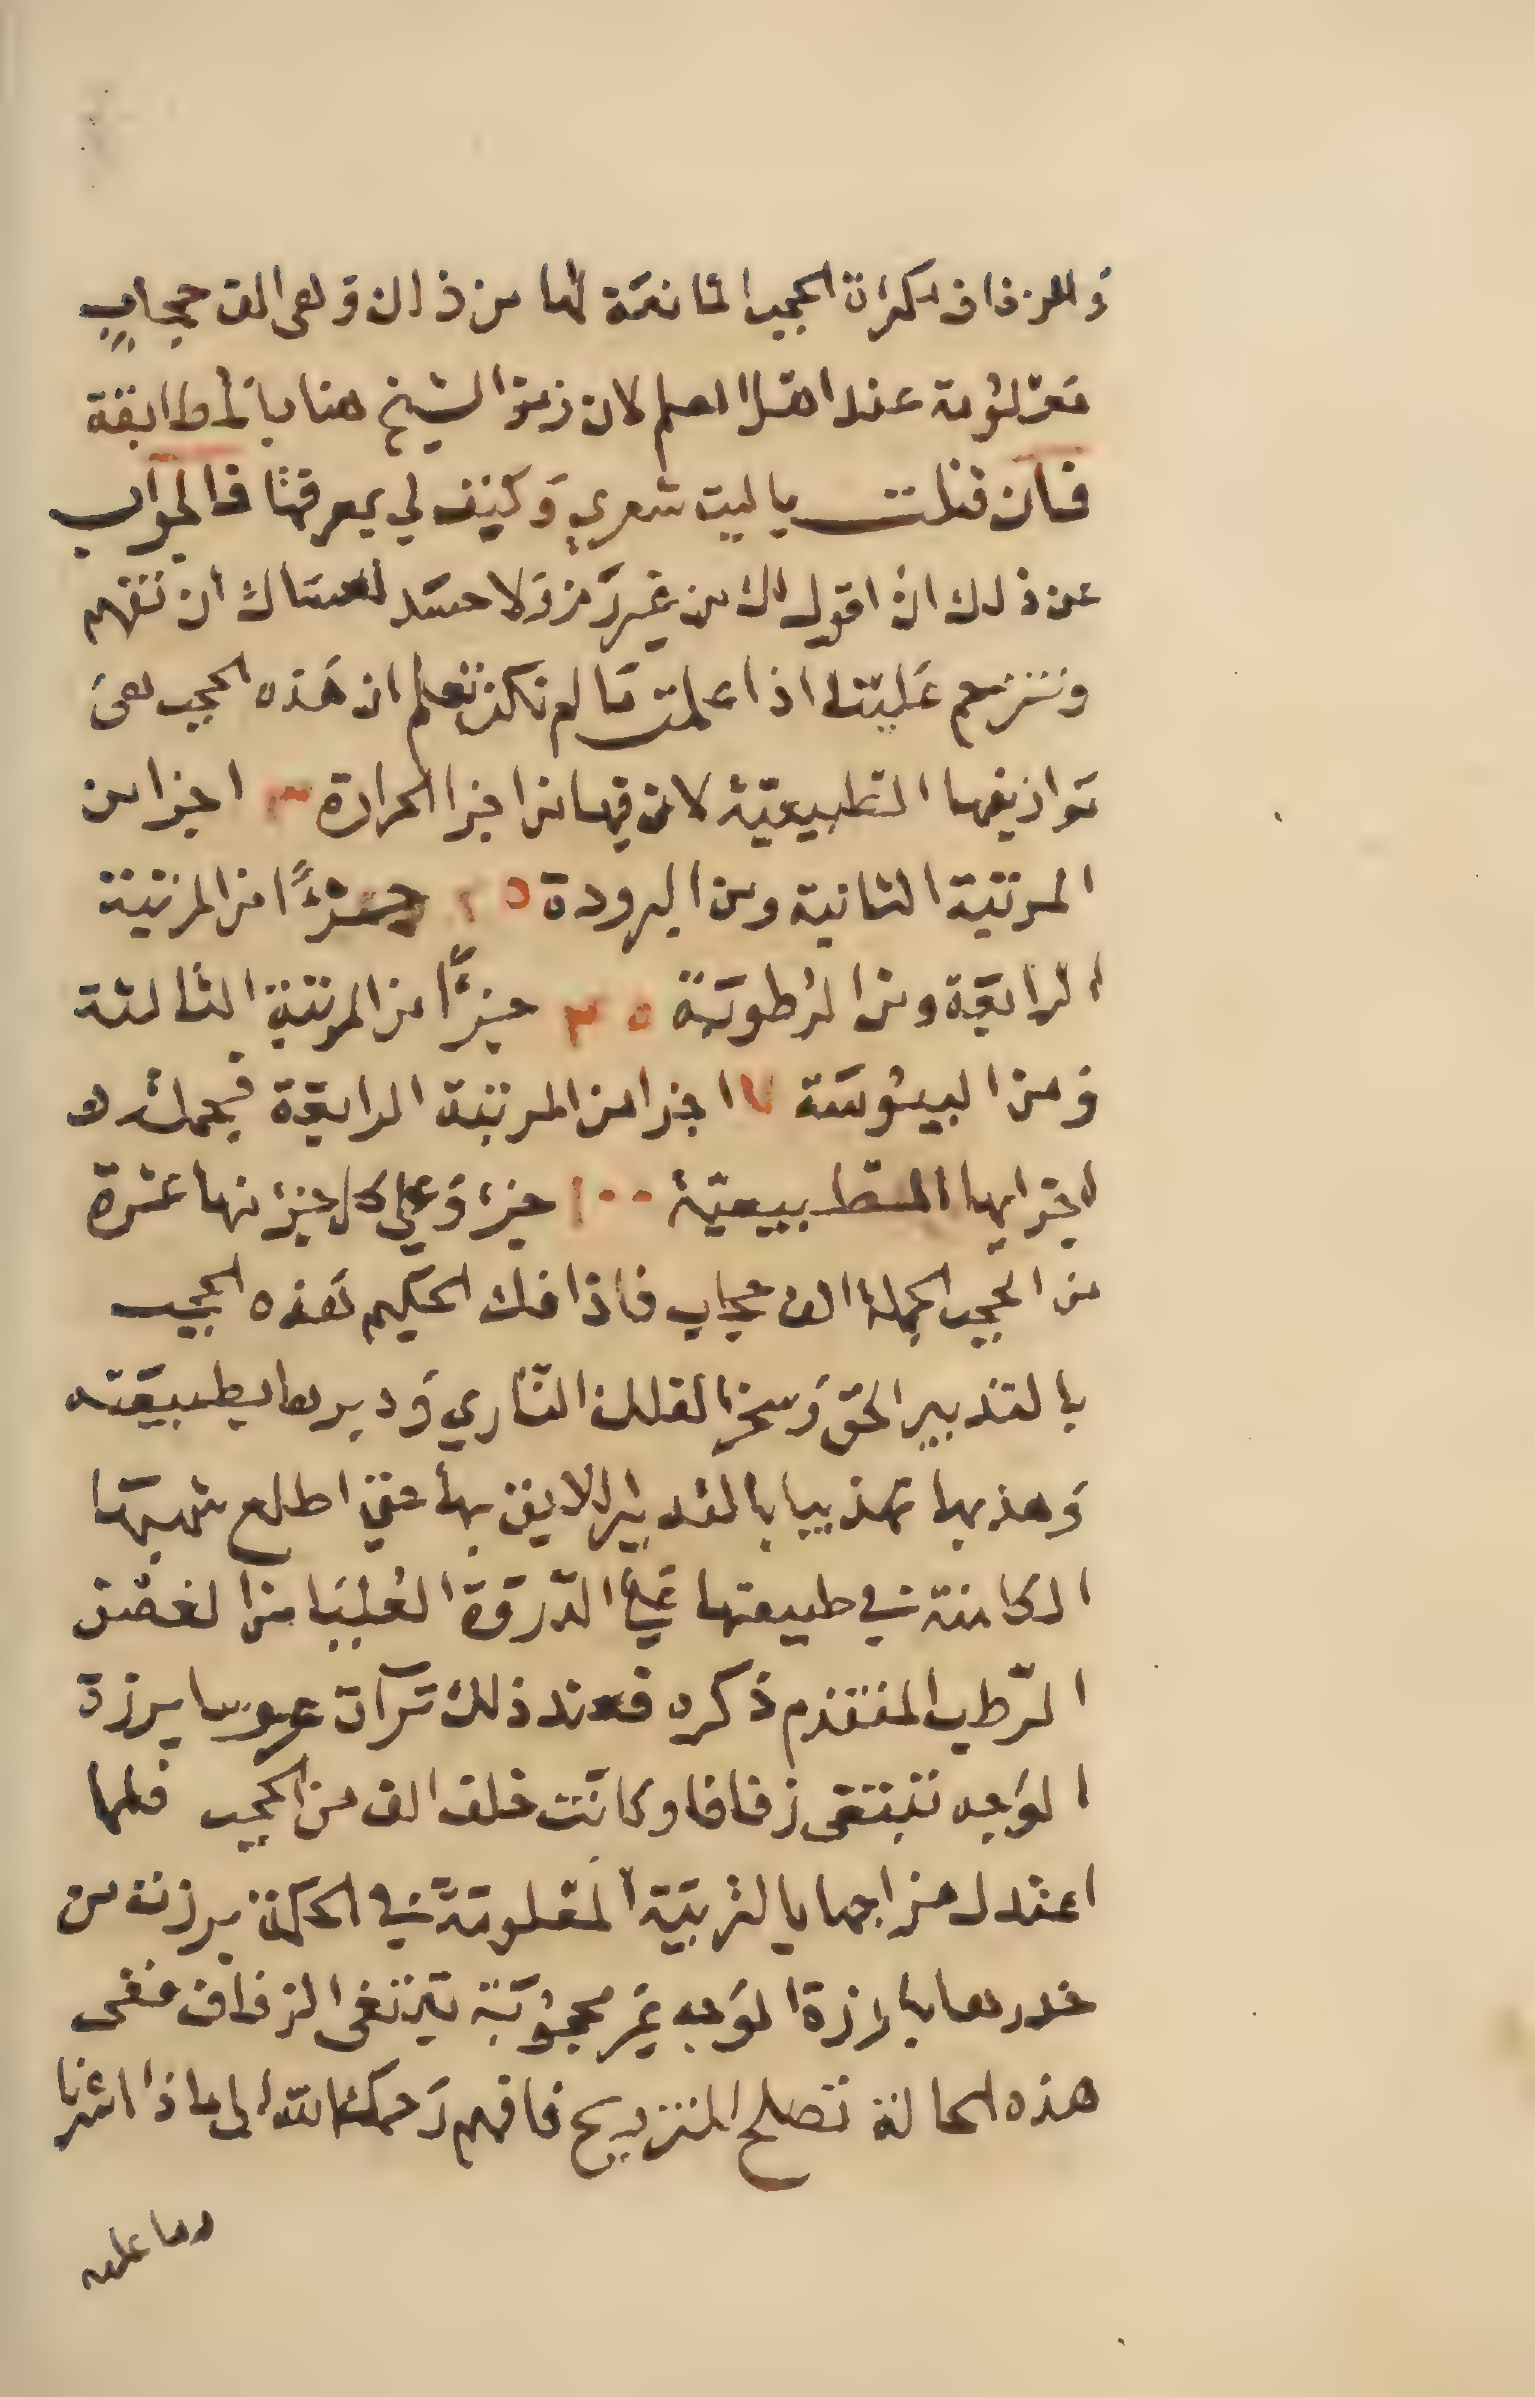 وللزفاف لكثرة الحجب المانعة لها من ذالك وهى الف حجاب
معلومة عند اهل العلم لان رمز الشيخ هنا بالمطابقة
فان قلت يا ليت شعري وكيف لي بمعرفتها فالجواب
عن ذلك ان اقول لك من غير رمز ولا حسد لعساك ان تفهم
وتترحم علينا اذا علمت ما لم تكن تعلم ان هذه الحجب هى
توازينها الطبيعية لان فيها من اجزا الحرارة ٢٣ اجزا من
المرتبة الثانية ومن البرودة ٢٥ جزءًا من المرتبة
الرابعة ومن الرطوبة ٣٥ جزءًا من المرتبة الثالثة
ومن اليبوسة ١٧ جزا من المرتبة الرابعة فجملة
اجزايها الطبيعية ١٠٠ جزء وعلى كل جزء منها عشرة
من الحجب الجملة الف حجاب فاذا فك الحكيم هذه الحجب
بالتدبير الحق وسخر الفلك النارى ودبرها بطبيعته
وهذبها تهذيبا بالتدبير اللايق بها حتي اطلع شهبها
الكامنة في طبيعتها علي الذروة العليا من الغصن
الرطب المتقدم ذكره فعند ذلك ترآت عروسا برزة
الوجه تبتغى زفافا وكانت خلف الف من الحجب فلما
اعتدل مزاجها بالتربية المعلومة في الحكمة برزت من
خدرها بارزة الوجه غير محجوبة تبتغى الزفاف ففى
هذه الحالة تصلح للتزويج فافهم رحمك الله الى ماذا اشرنا
وما عليه